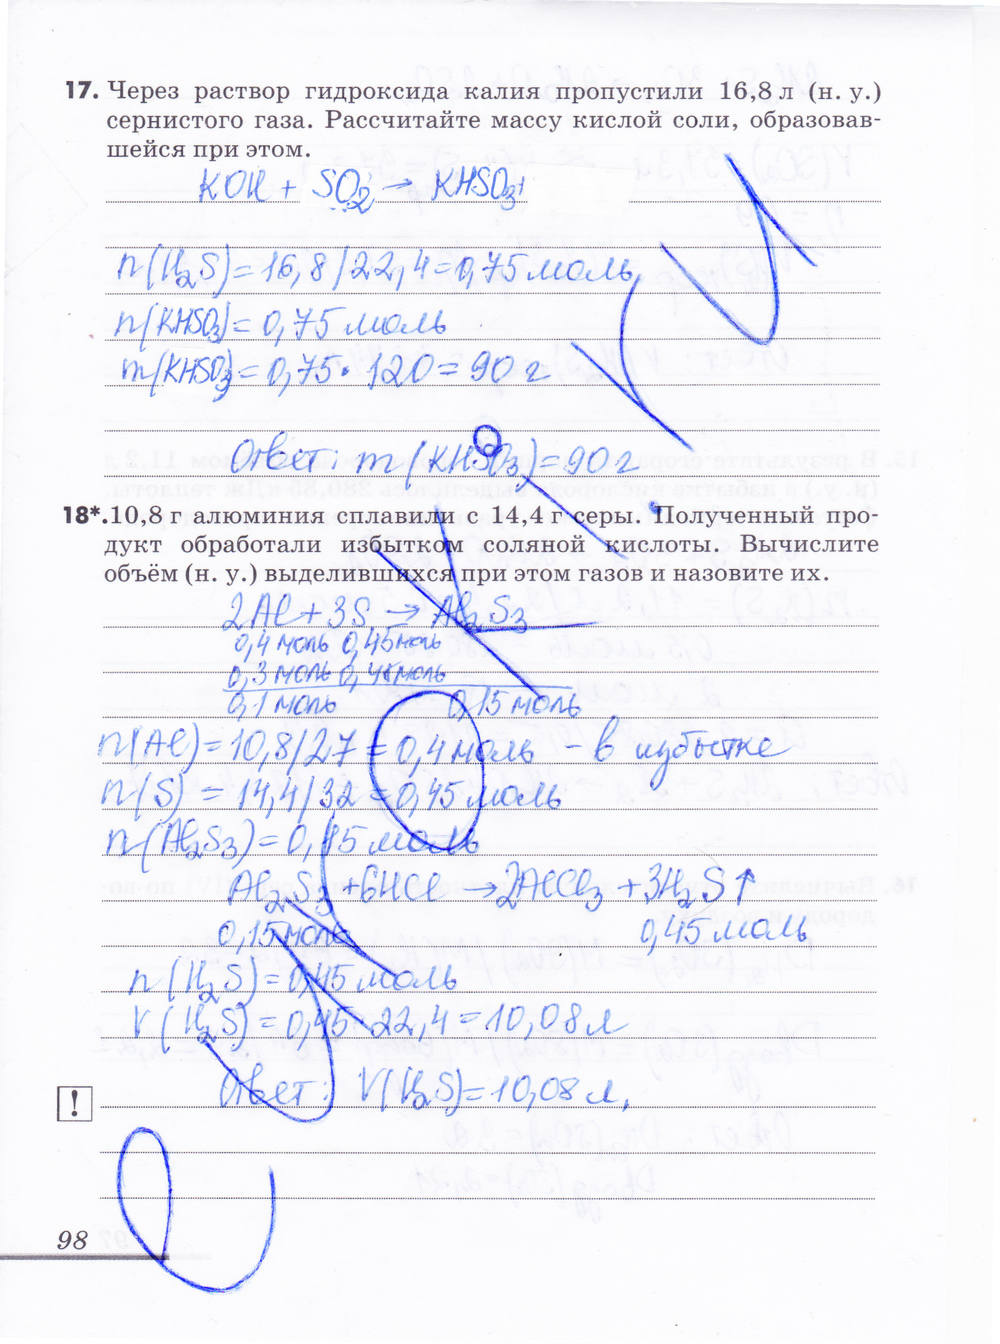 17. Через раствор гидроксида калия пропустили 16,8 л (н. у.)
сернистого газа. Рассчитайте массу кислой соли, образовав-
шейся при этом.
KOH + SO₂ → KHSO₃
n(H₂S) = 16,8/22,4 = 0,75 моль
n(KHSO₃) = 0,75 моль
m(KHSO₃) = 0,75 · 120 = 90 г
Ответ: m(KHSO₃) = 90 г
18*. 10,8 г алюминия сплавили с 14,4 г серы. Полученный про-
дукт обработали избытком соляной кислоты. Вычислите
объём (н. у.) выделившихся при этом газов и назовите их.
2Al + 3S → Al₂S₃
0,4 моль 0,45 моль
0,3 моль 0,45 моль
0,1 моль 0,15 моль
n(Al) = 10,8/27 = 0,4 моль – в избытке
n(S) = 14,4/32 = 0,45 моль
n(Al₂S₃) = 0,15 моль
Al₂S₃ + 6HCl → 2AlCl₃ + 3H₂S↑
0,15 моль 0,45 моль
n(H₂S) = 0,45 моль
V(H₂S) = 0,45 · 22,4 = 10,08 л
Ответ: V(H₂S) = 10,08 л.
!
98